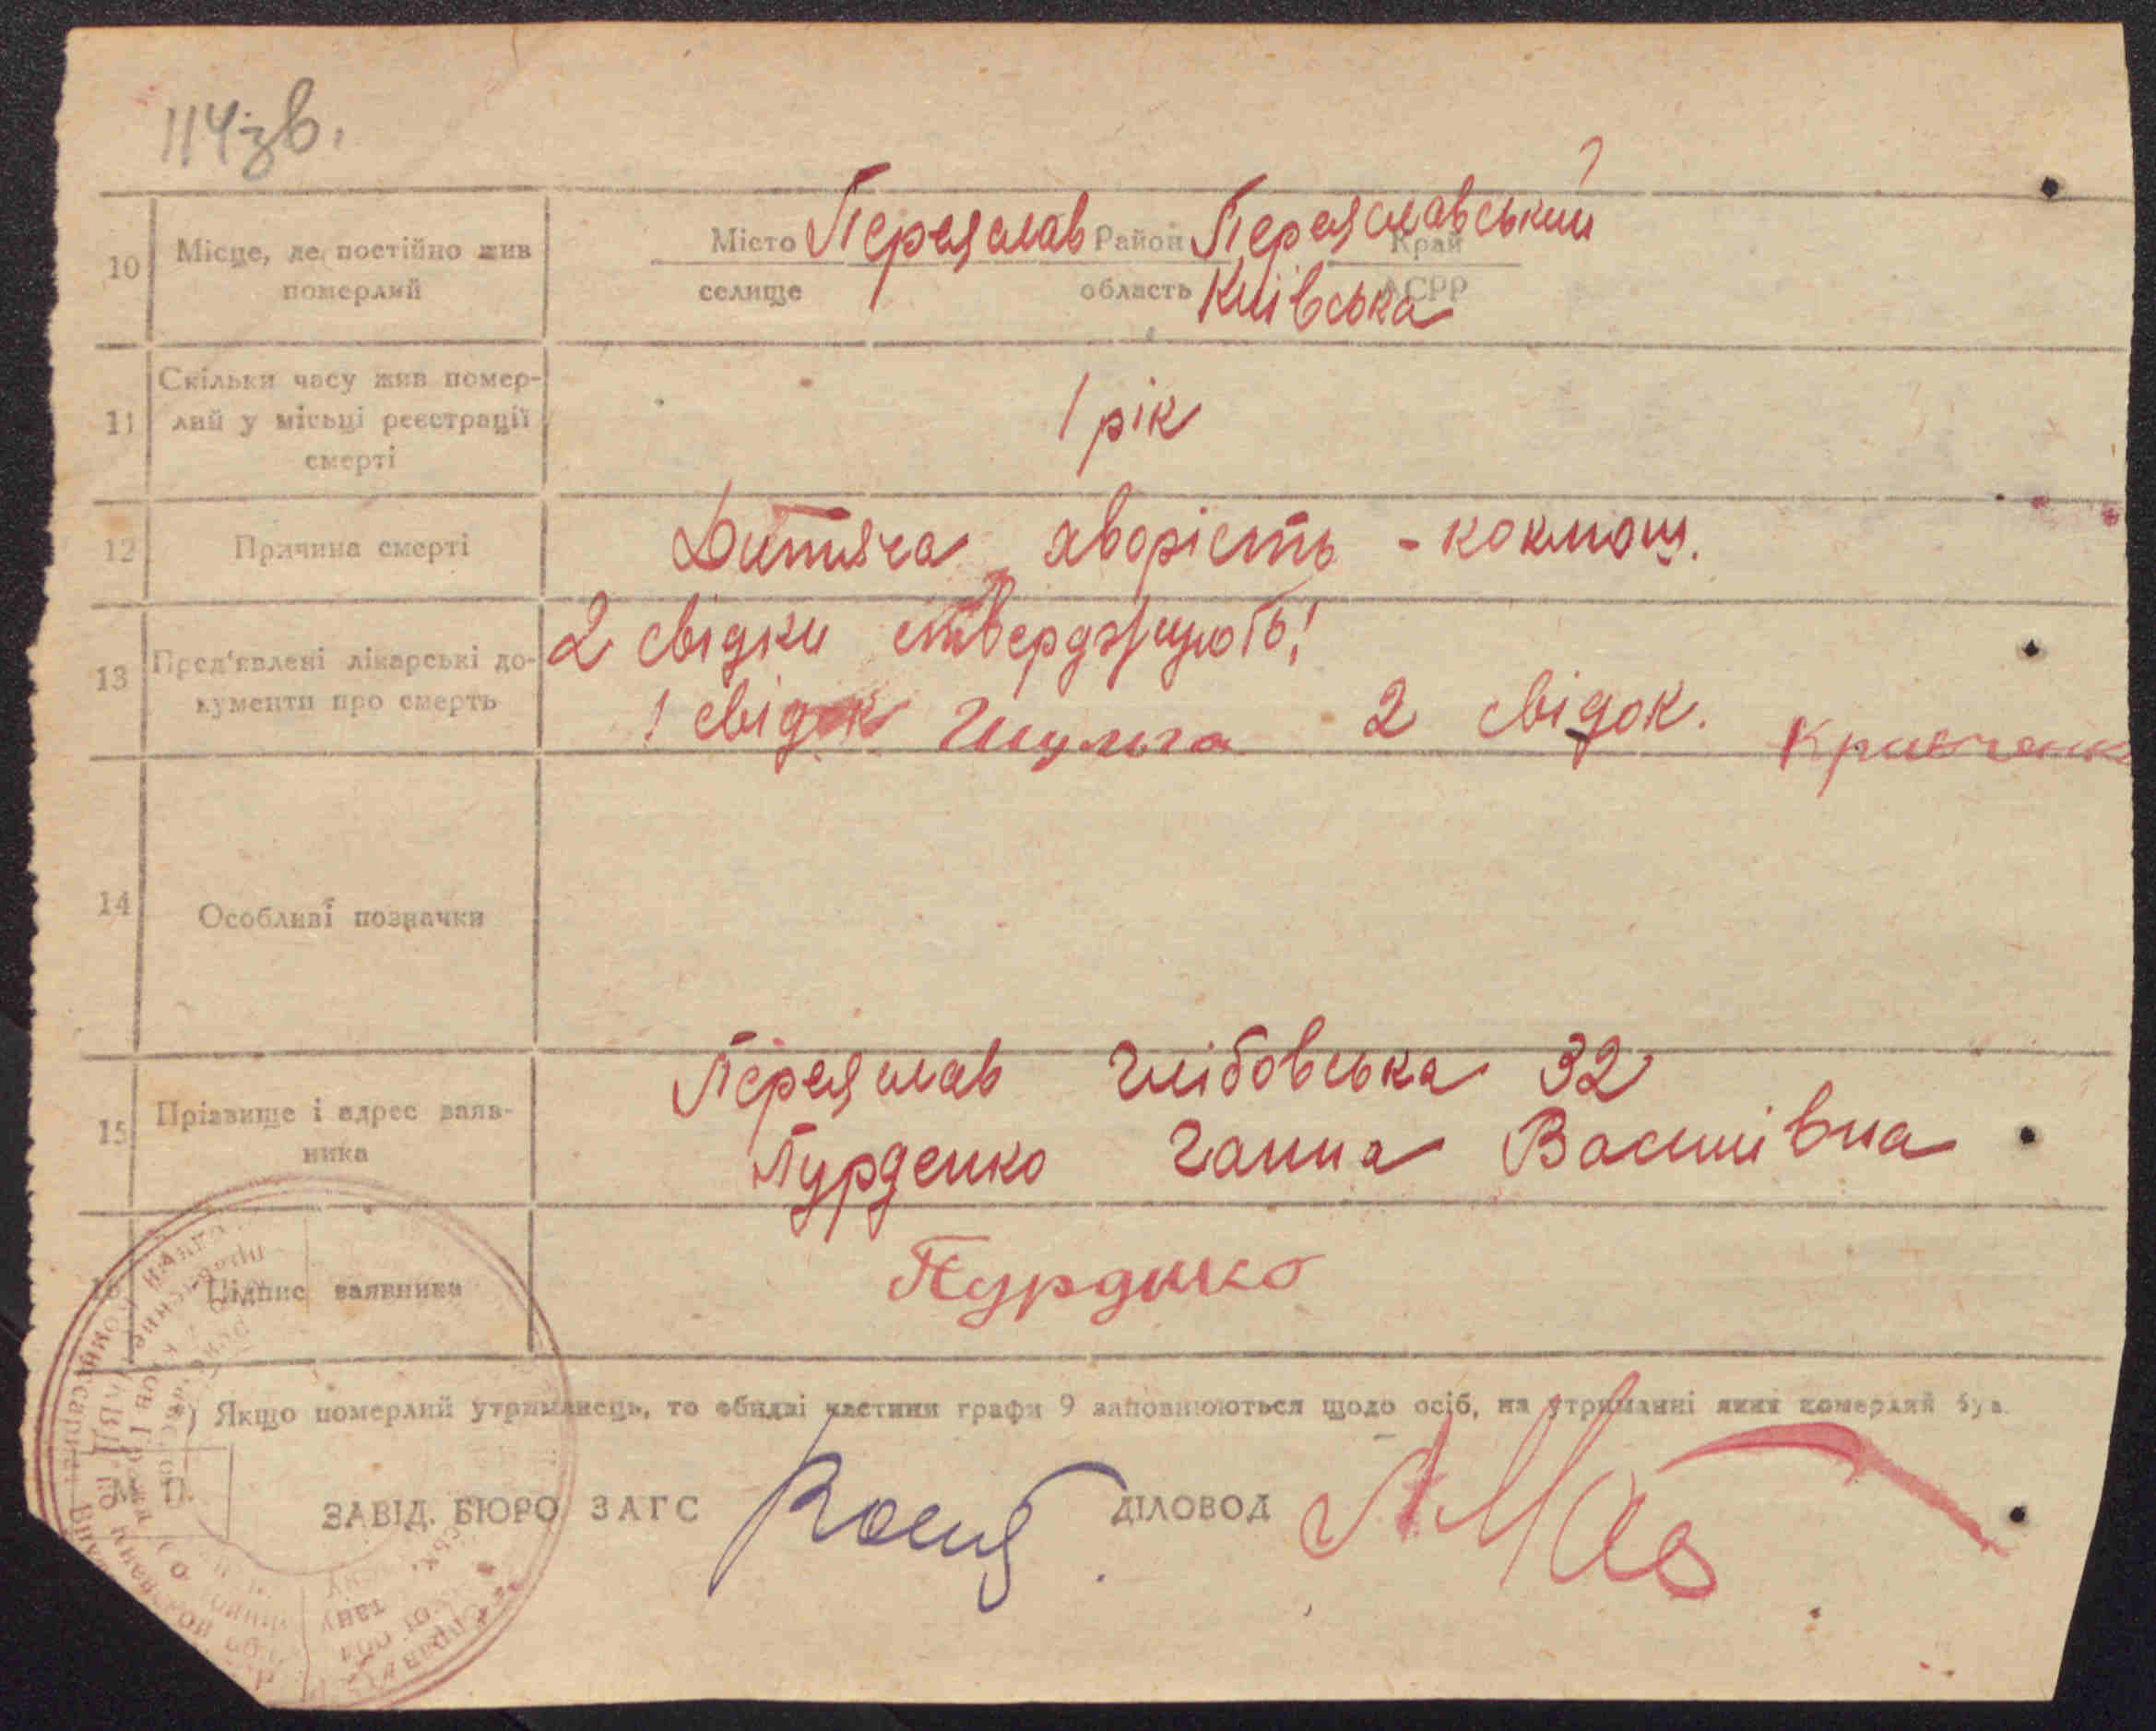 114зв.
10 Місце, де постійно жив померлий
Місто Переяслав Район Переяславський Край
селище область Київська АСРР
11 Скільки часу жив помер-
лий у місьці реєстрації
смерті
1 рік
12 Причина смерті
Дитяча хворість - коклюш.
2 свідки стверджують!
13 Пред'явлені лікарські до-
кументи про смерть
1 свідок Шульга 2 свідок. Кравченко
14 Особливі позначки
Переяслав Глібовська 32
15 Прізвище і адрес заяв-
ника
Пурденко Ганна Василівна
16 Підпис заявника
Пурденко
) Якщо померлий утриманець, то обидві частини графи 9 заповнюються щодо осіб, на утриманні яких померлий був
М. П.
ЗАВІД. БЮРО ЗАГС ДІЛОВОД